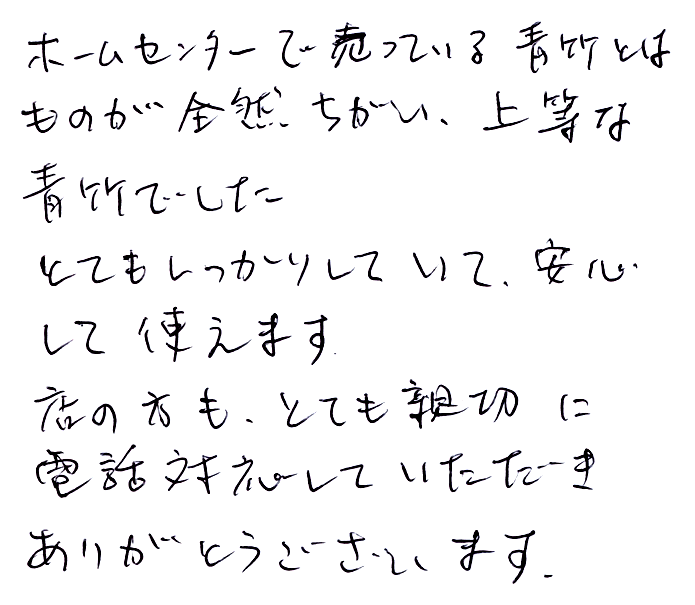 ホームセンターで売っている青竹とは
ものが全然ちがい、上等な
青竹でした
とてもしっかりしていて、安心
して使えます
店の方も、とても親切に
電話対応していただき
ありがとうございます.